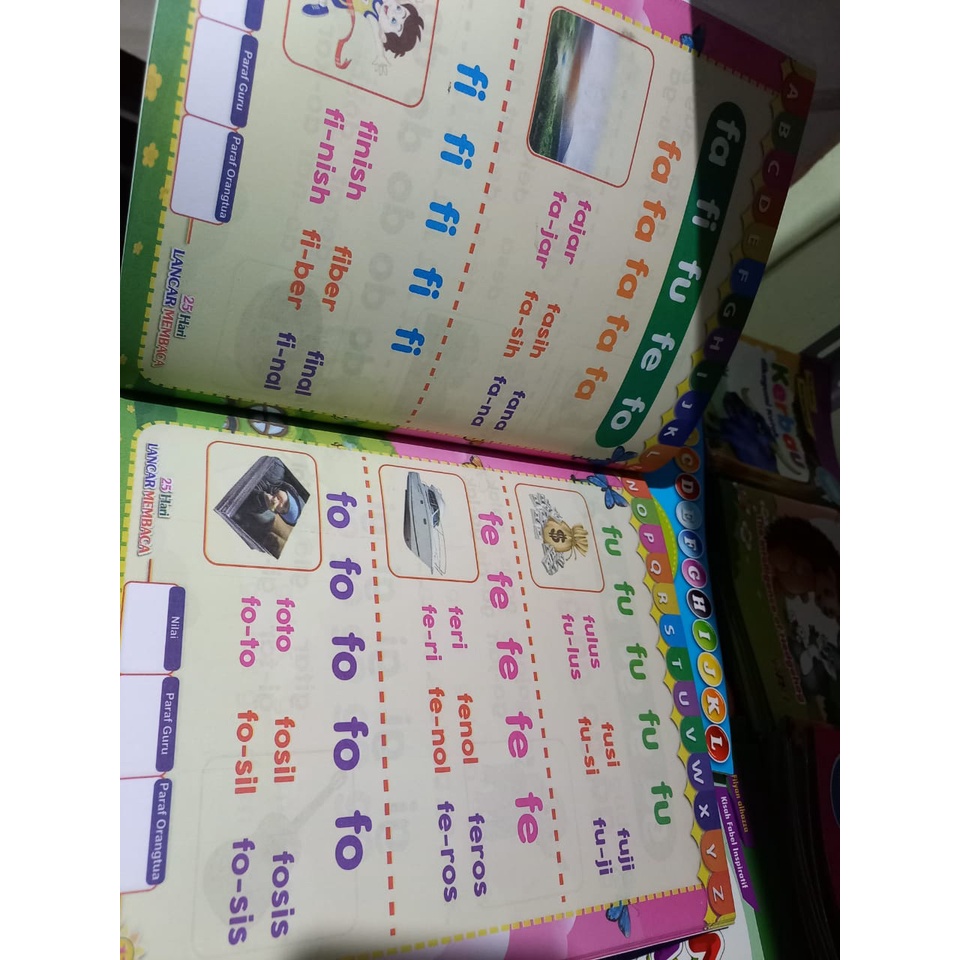 A B C D E F G H I J K L
fa fi fu fe fo
fa fa fa fa fa
fajar fasih fana
fa-jar fa-sih fa-na
fi fi fi fi fi
finish fiber final
fi-nish fi-ber fi-nal
Paraf Guru Paraf Orangtua
25 Hari
LANCAR MEMBACA
N O P Q R S T U V W X Y Z
fu fu fu fu fu
fulus fusi fuji
fu-lus fu-si fu-ji
fe fe fe fe fe
feri fenol feros
fe-ri fe-nol fe-ros
fo fo fo fo fo
foto fosil fosis
fo-to fo-sil fo-sis
25 Hari
LANCAR MEMBACA
Nilai Paraf Guru Paraf Orangtua
C D E F G H I J K L
Kisah Fabel Inspiratif
Kerbau